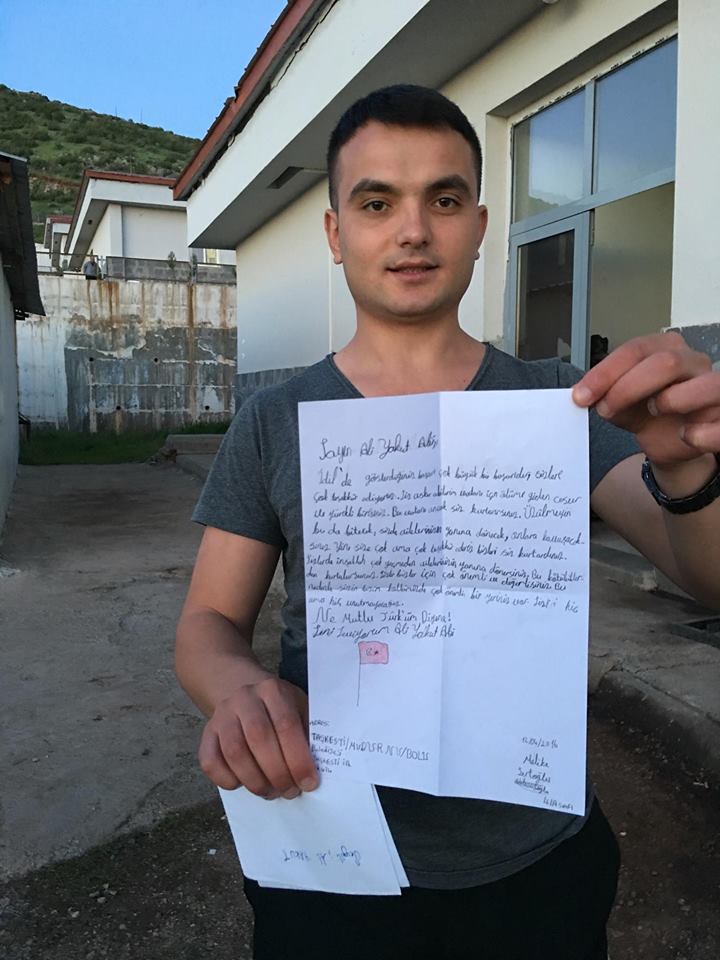 Sayın Ali Yakut Abi;
İdil'de gösterdiğiniz başarı çok büyük bir başarıdır sizlere
çok teşekkür ediyorum. Siz aslında vatanı için ölüme giden cesur
ve yürekli birisiniz. Bu vatanı ancak siz kurtarırsınız. Üzülmeyin
bu da bitecek, sizde ailelerinizin yanına dönecek, onlara kavuşacak
sınız. Yani size çok ama çok teşekkür ederiz bizleri siz kurtardınız.
Sizlerde inşallah çok geçmeden ailelerinizin yanına dönersiniz. Bu kötülükler
den kurtulursunuz. Sizler bizler için çok önemli ve değerlisiniz. Bu
nedenle sizin bizim kalbimizde çok önemli bir yeriniz var. Sizi hiç
ama hiç unutmayacağız.
Ne Mutlu Türk'üm Diyene!
Sizi Seviyorum Ali Yakut Abi
ADRES:
TAŞKESTİ/MUDURNU/BOLU
12/04/2016
Melike
Sertoğlu
4/A sınıfı
Sevgili, Ali YAKUT